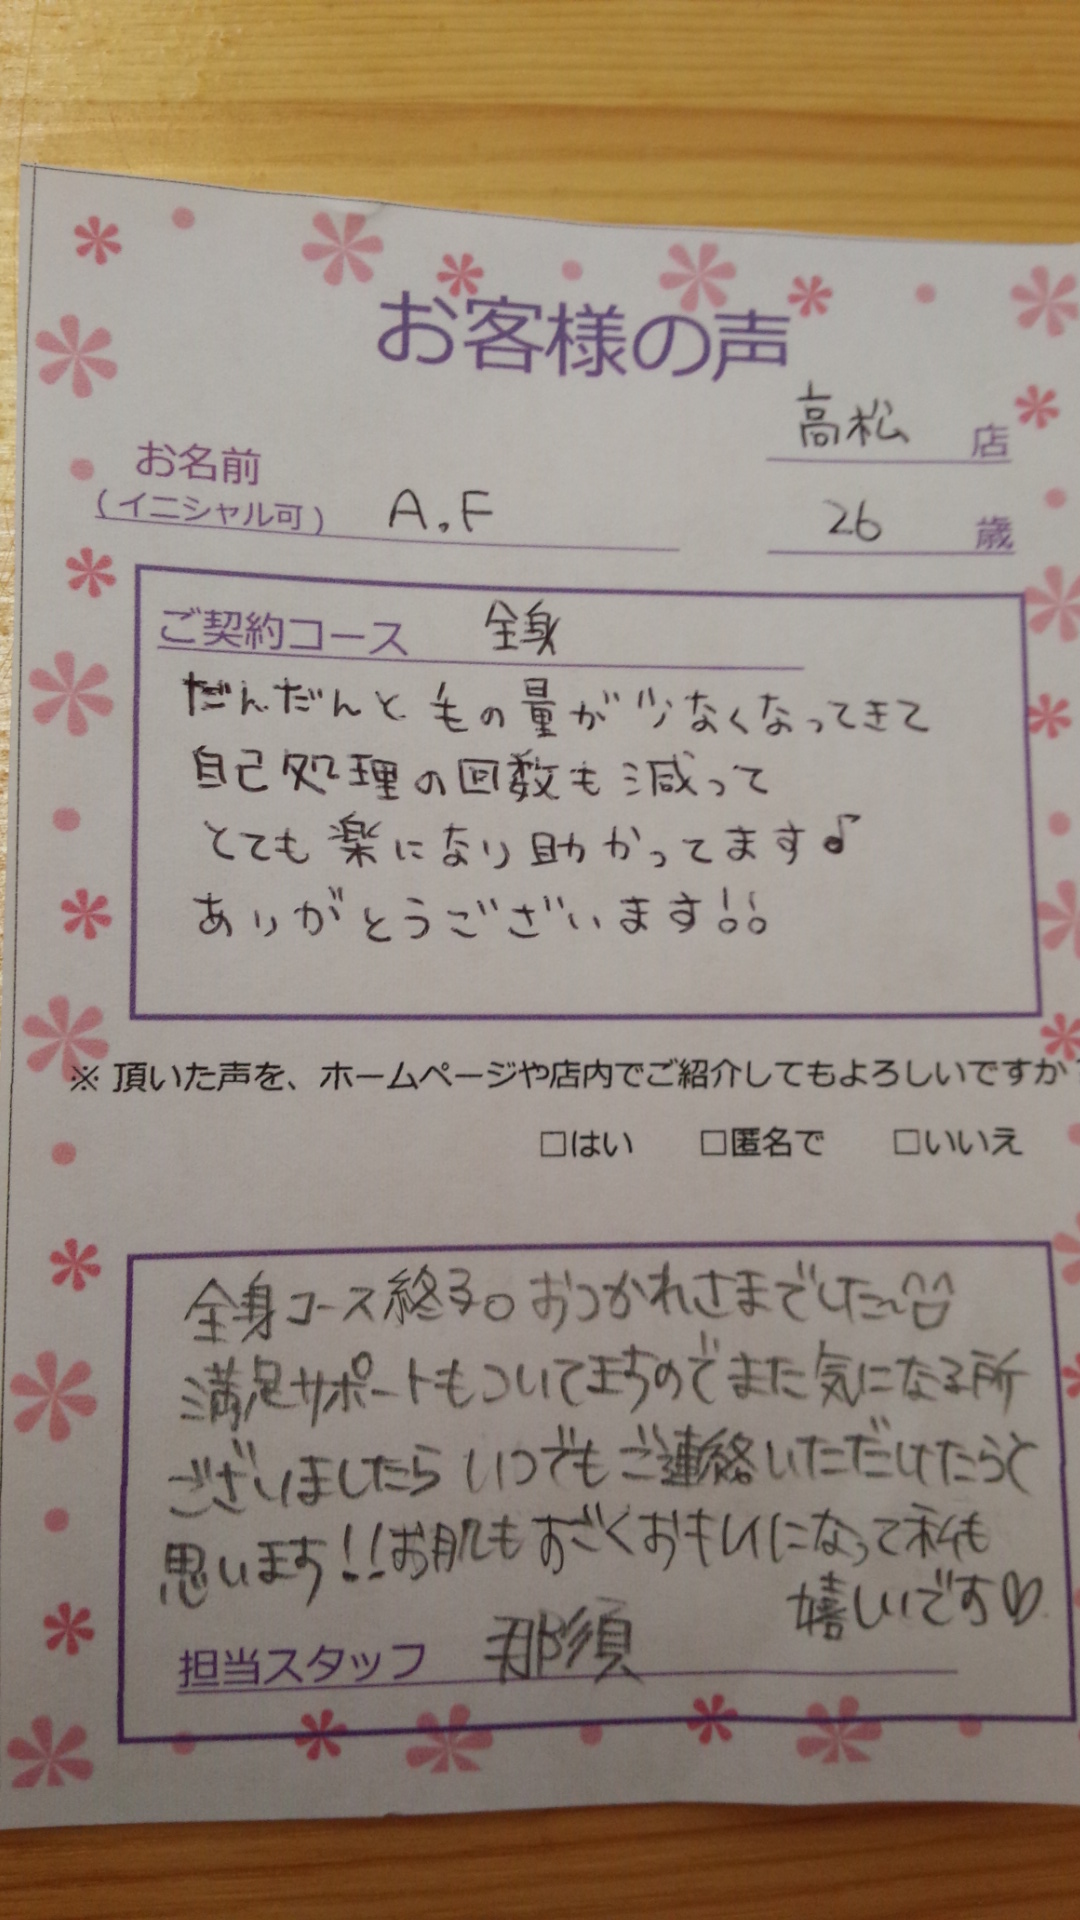 お客様の声
高松 店
お名前
(イニシャル可) A.F
26 歳
ご契約コース 全身
だんだんと毛の量が少なくなってきて
自己処理の回数も減って
とても楽になり助かってます♪
ありがとうございます!!
※ 頂いた声を、ホームページや店内でご紹介してもよろしいですか
□はい □匿名で □いいえ
全身コース終了。おつかれさまでした〜
満足サポートもついてますのでまた気になる所
ございましたらいつでもご連絡いただけたらと
思います!!お肌もすごくおキレイになって私も
嬉しいです♡
担当スタッフ 那須